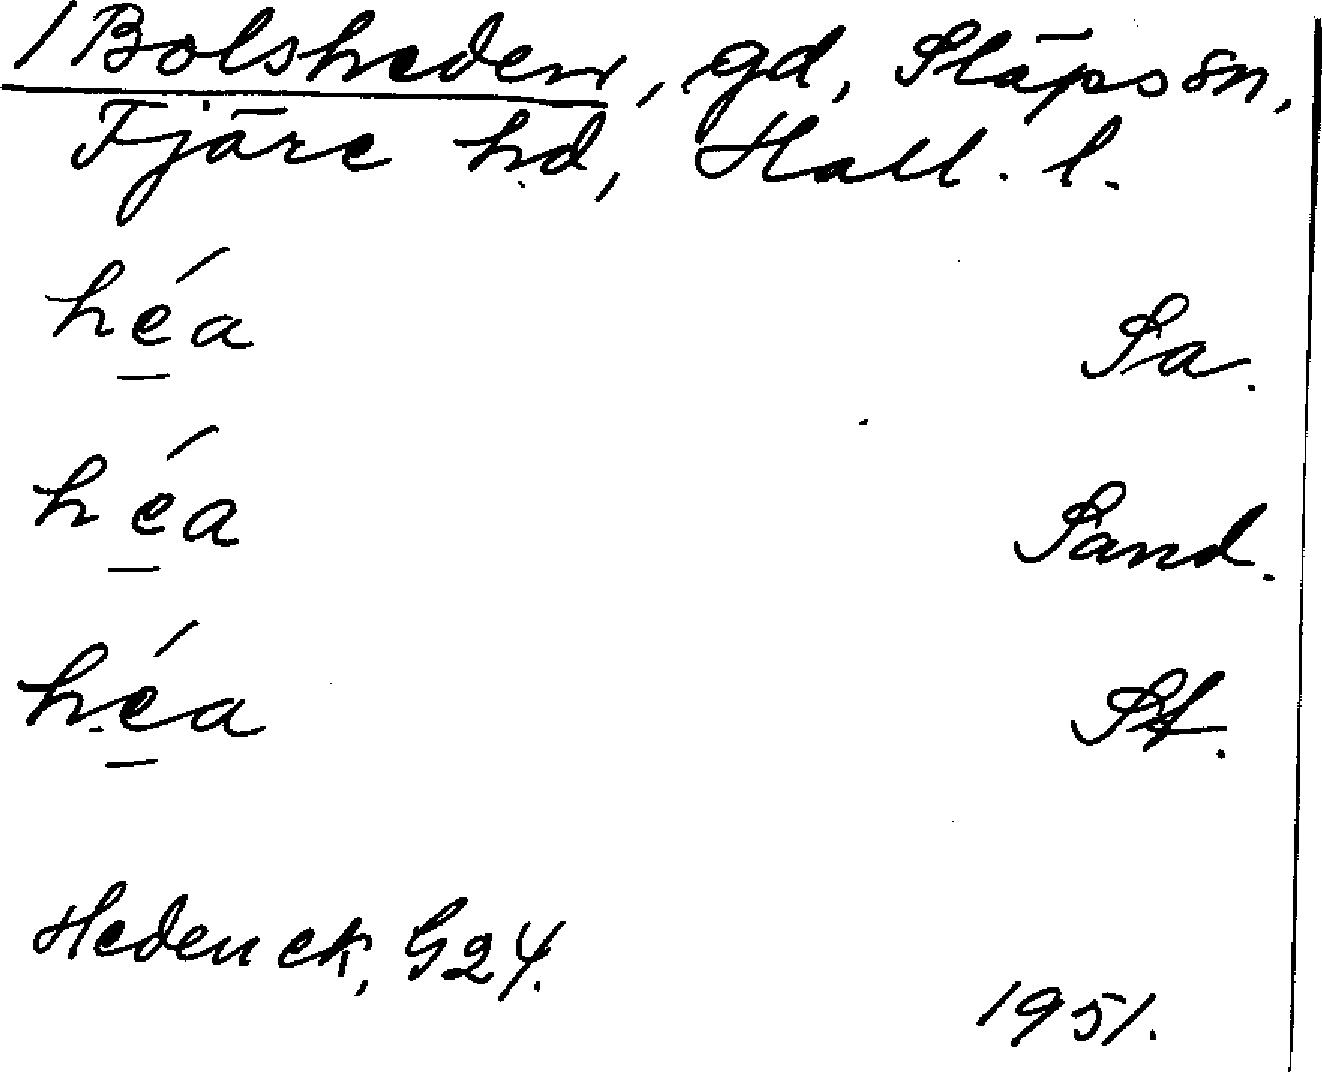 /Bolsheden, gd, Släps sn,
Fjäre hd, Hall. l.
héa Sa.
héa Sand.
héa St.
Heden ek, G24.
1951.